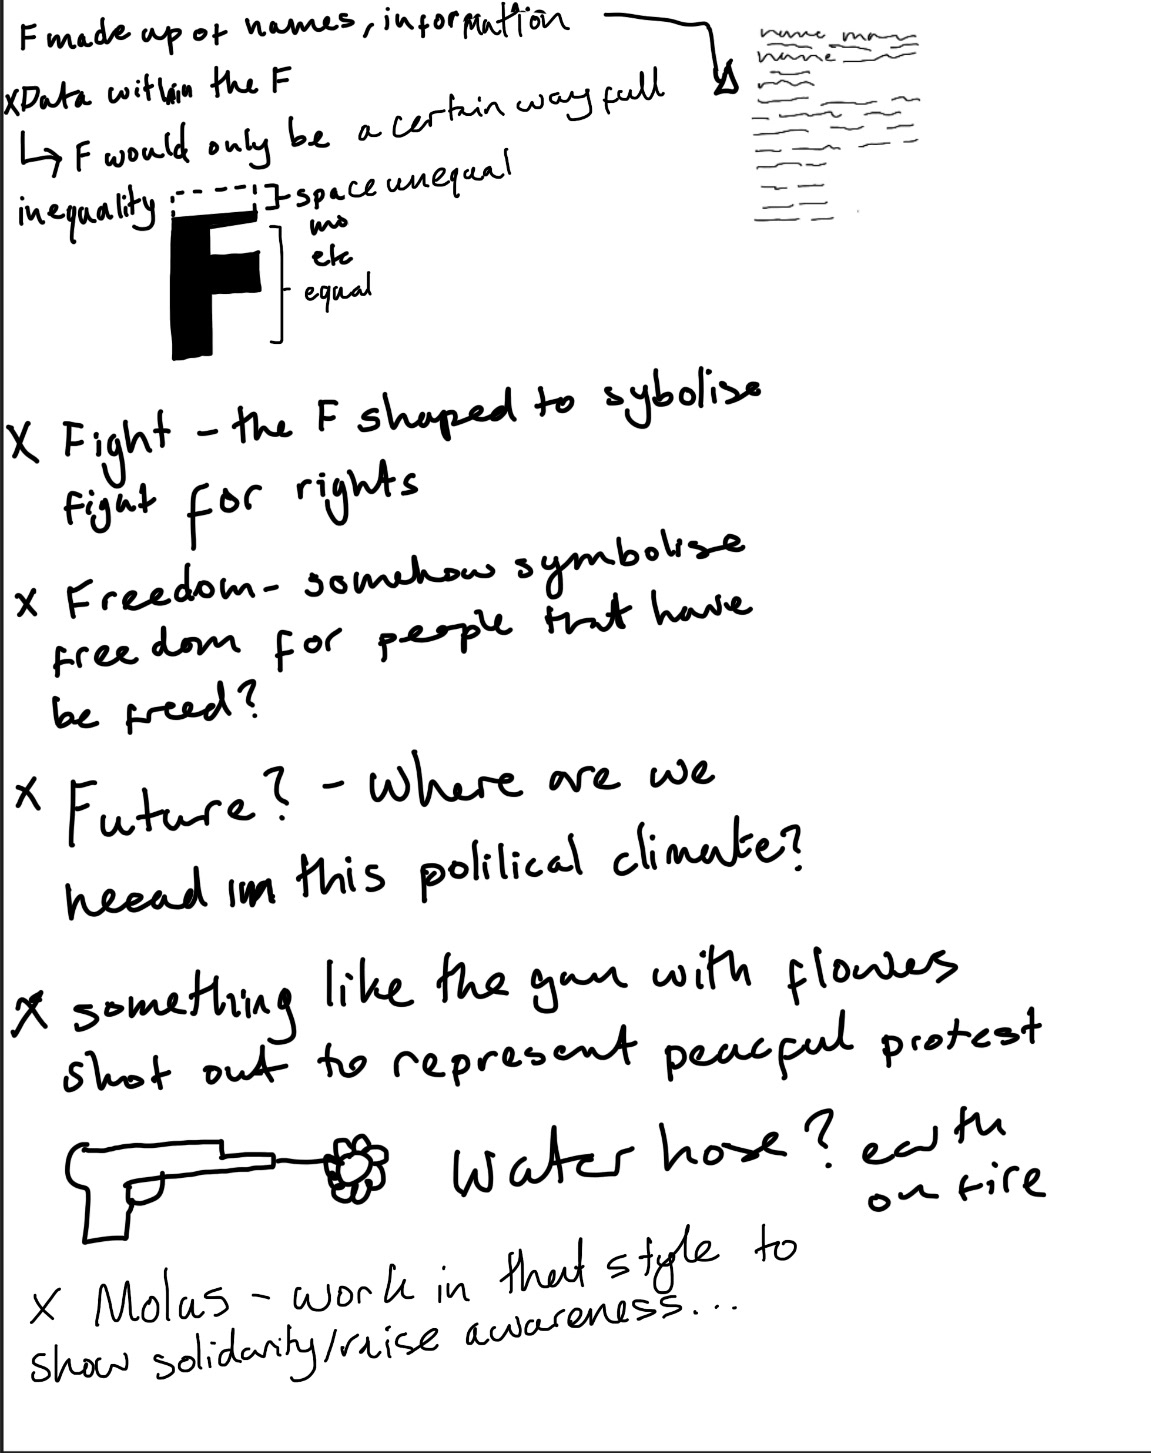 F made up of names, information
name
name
x Data within the F
↳ F would only be a certain way full
inequality
space unequal
etc
equal
x Fight - the F shaped to sybolise
fight for rights
x Freedom - somehow symbolise
freedom for people that have
be freed?
x Future? - where are we
heead in this political climate?
x something like the gun with flowers
shot out to represent peaceful protest
water hose? earth
on fire
x Molas - work in that style to
show solidarity/raise awareness...